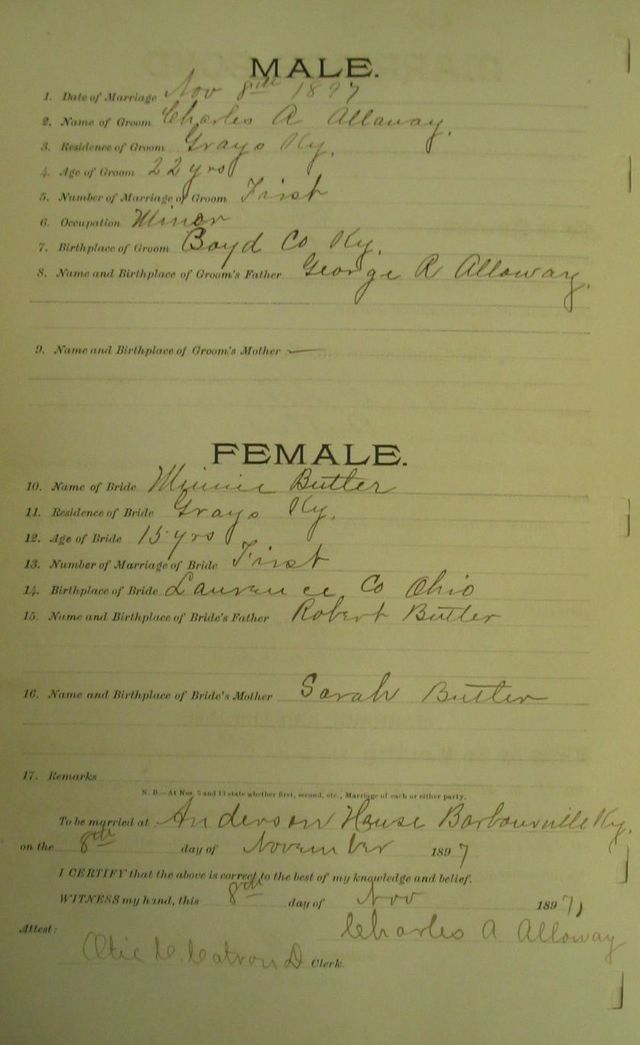 MALE.
1. Date of Marriage Nov 8th 1897
2. Name of Groom Charles A Alloway,
3. Residence of Groom Grays Ky,
4. Age of Groom 22 yrs
5. Number of Marriage of Groom First
6. Occupation Miner
7. Birthplace of Groom Boyd Co Ky.
8. Name and Birthplace of Groom's Father George R Alloway,
9. Name and Birthplace of Groom's Mother —
FEMALE.
10. Name of Bride Minnie Butler
11. Residence of Bride Grays Ky,
12. Age of Bride 15 yrs
13. Number of Marriage of Bride First
14. Birthplace of Bride Laurence Co Ohio
15. Name and Birthplace of Bride's Father Robert Butler
16. Name and Birthplace of Bride's Mother Sarah Butler
17. Remarks
N. B.—At Nos. 5 and 13 state whether first, second, etc., Marriage of each or either party.
To be married at Anderson House Barbourville Ky,
on the 8th day of November 1897
I CERTIFY that the above is correct to the best of my knowledge and belief.
WITNESS my hand, this 8th day of Nov 1897,
Charles A Alloway
Attest:
Catron D Clerk.